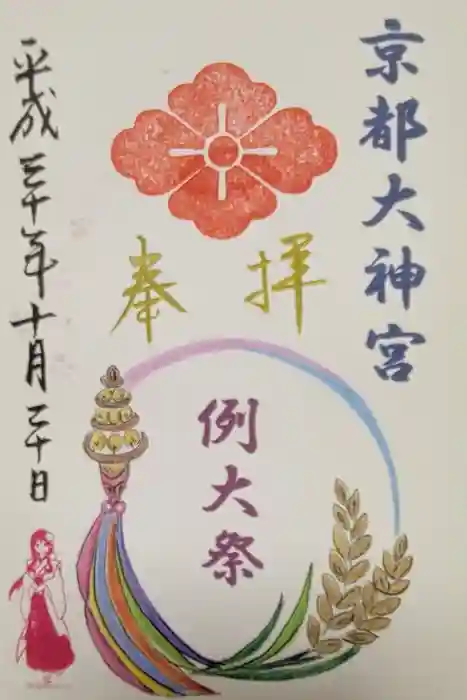 京都大神宮
奉拝
例大祭
平成三十年十月二十日